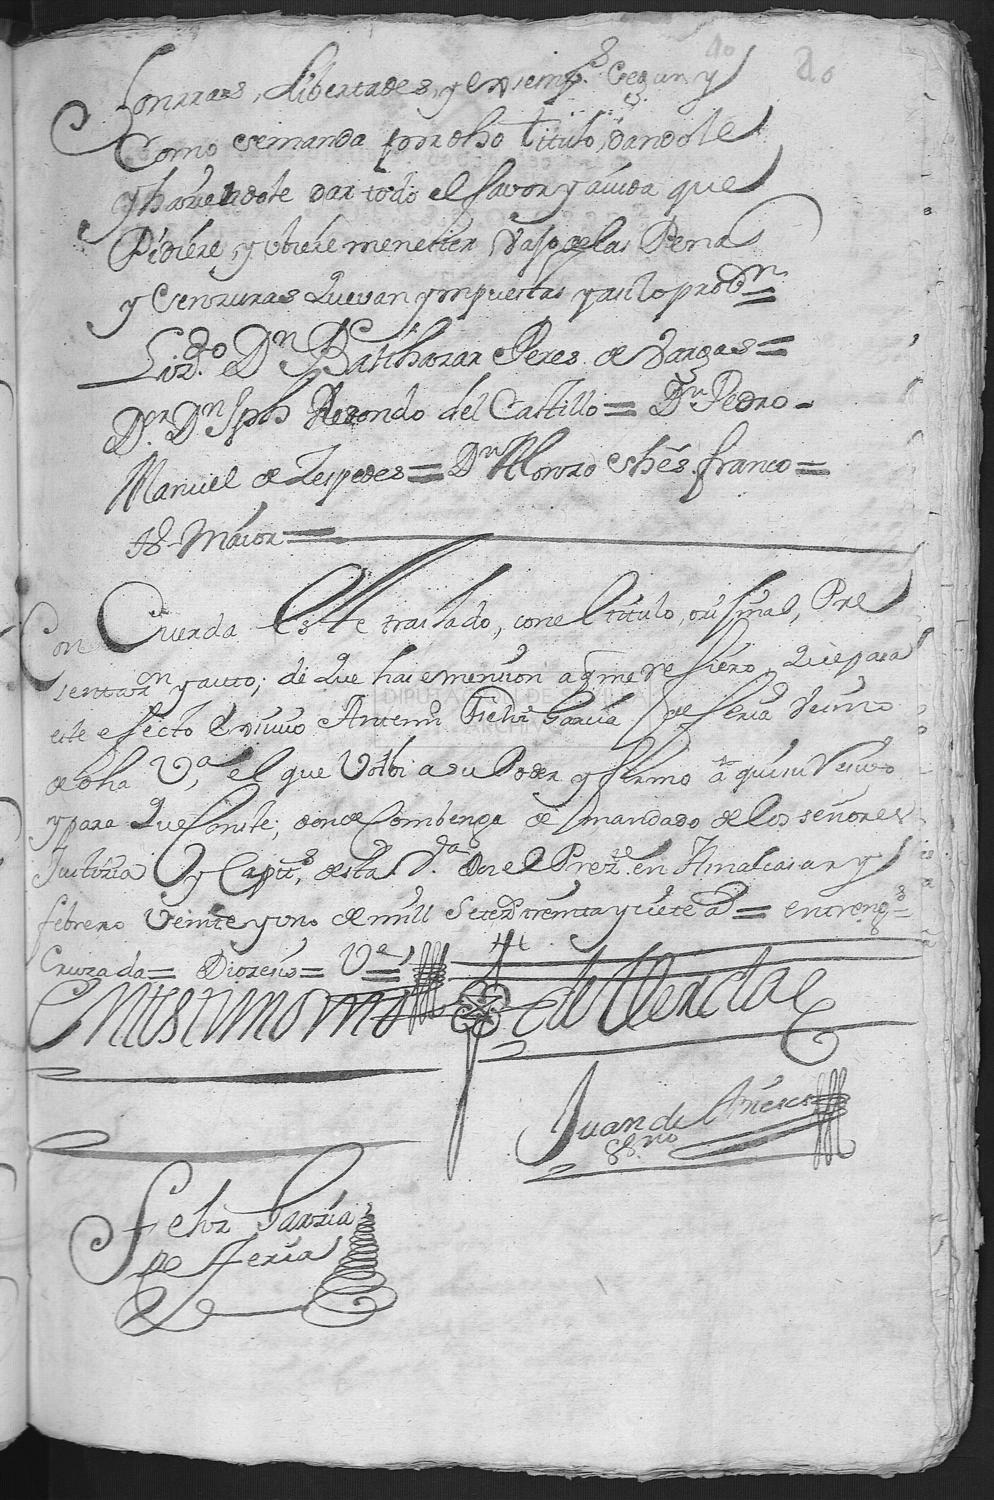 honrras, libertades, y exsemps. segun y
Como se manda por dho titulo, dandole
y haziendole dar todo el favor y aiuda que
Pidiere, y ubiere menester vajo de las Penas
y Censuras que van ympuestas y asi lo proben.
Lizdo. Dn Balthazar Peres de Vargas =
Dor. Dn Jph Redondo del Castillo = Dn Pedro
Manuel de Zespedes = Dn Alonzo shes. franco =
ss. Maior =
Con Cuerda Este traslado, con el titulo, orijinal, Pre
sentazn. y auto; de que haze menzion a q me refiero, que para
este efecto Exsivio Antemi Feliz Garcia de feria Vezino
de dha Va, el que Volbi a su Poder y firmo aqui su Resivo
y para que Conste, donde Combenga de mandado de los señores
Justizia y Capres. desta Va. doi el Preze. en Almalcasar y
febrero Veinte y uno de mill Setezs. treinta y siete as = entrengs. =
Cruzada = Diozesis = Va =
En testimonio de Verdad
Juan de
ssno
Feliz Garzia
de Feria
DIPUTACIÓN DE SEVILLA
ARCHIVO